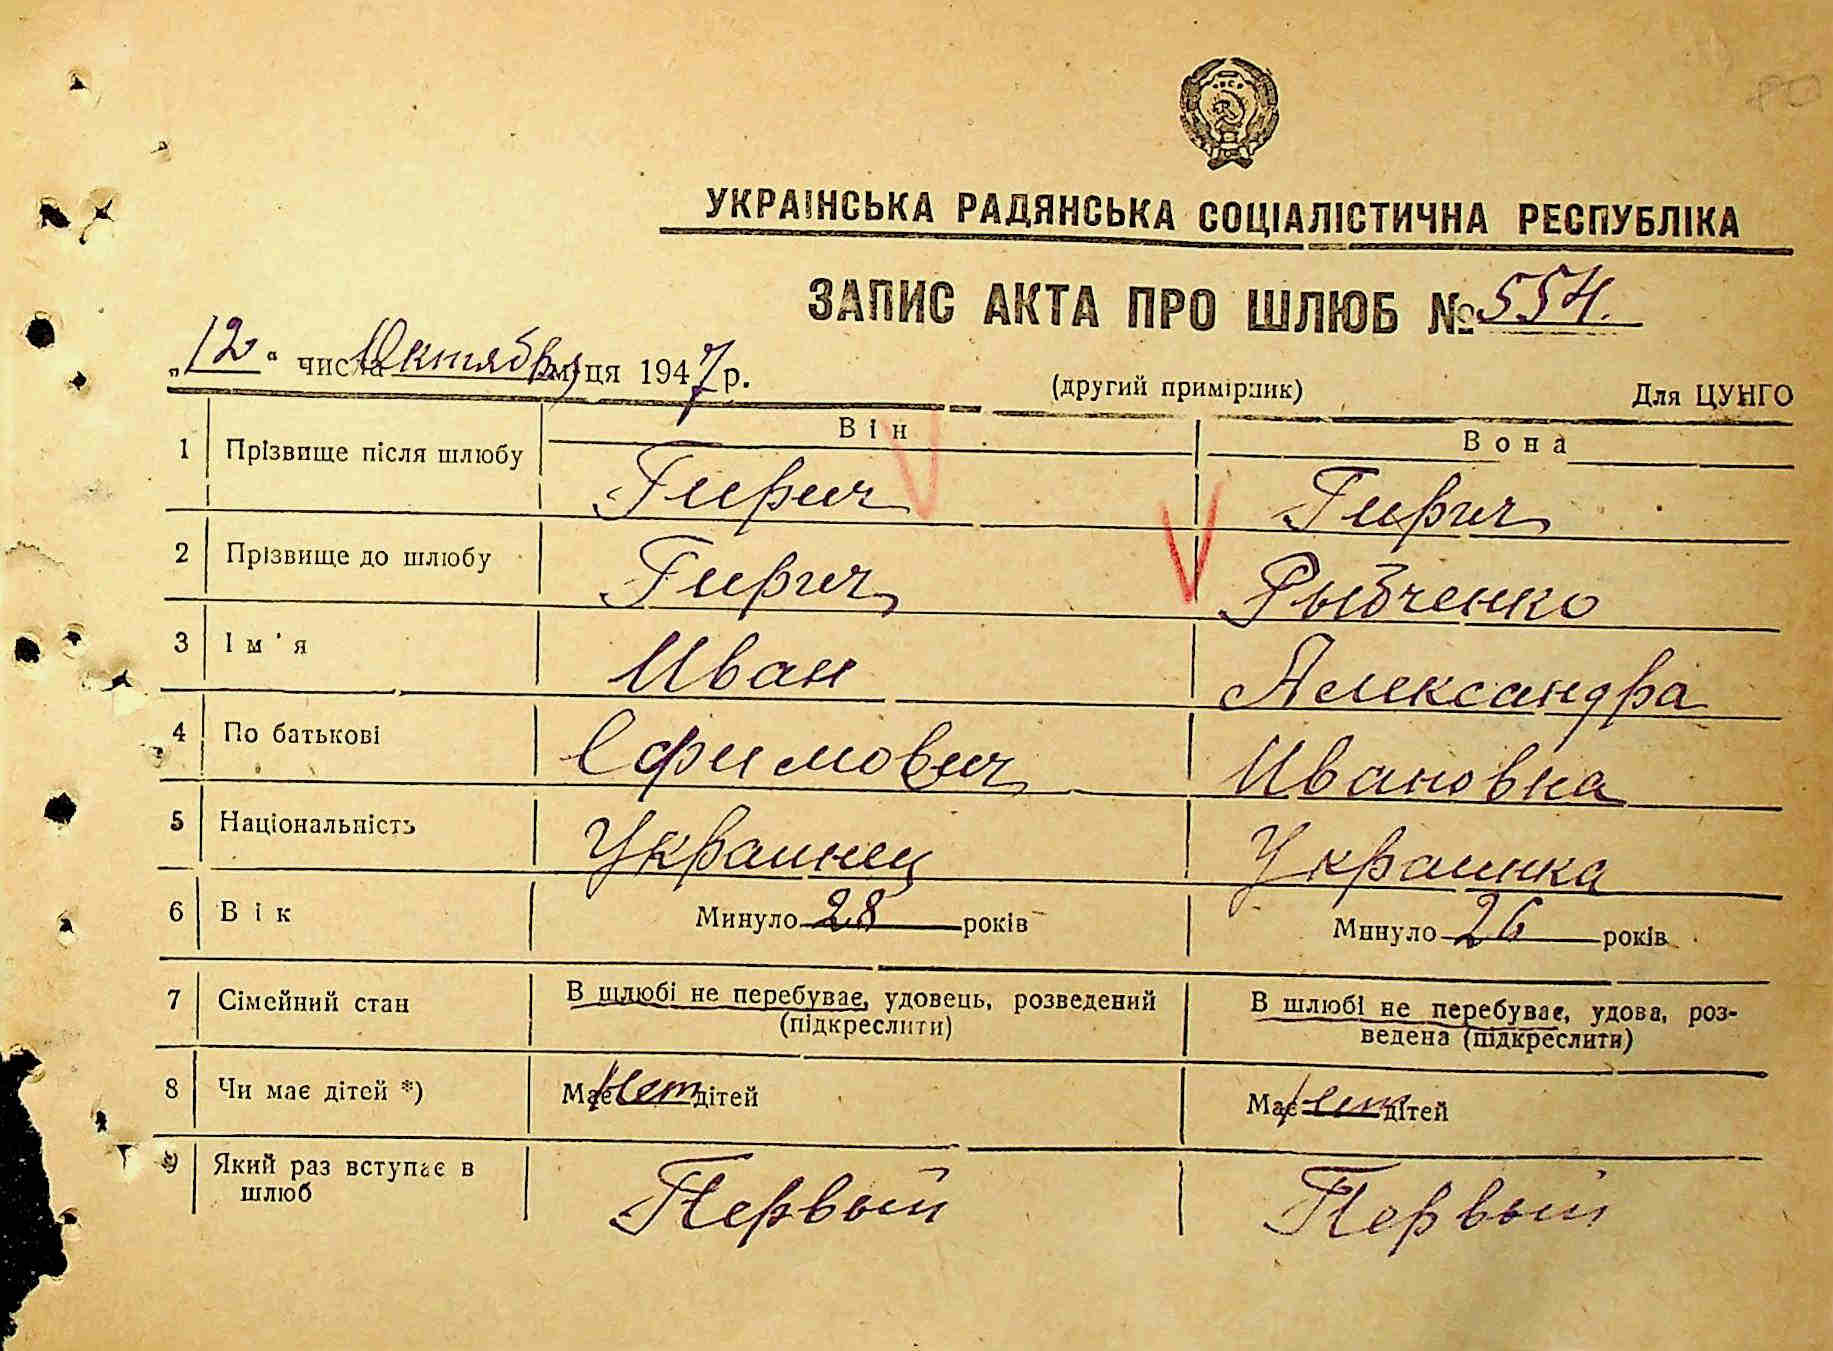 УКРАЇНСЬКА РАДЯНСЬКА СОЦІАЛІСТИЧНА РЕСПУБЛІКА
ЗАПИС АКТА ПРО ШЛЮБ № 554.
„12“ числа Октября м-ця 1947 р.
(другий примірник) Для ЦУНГО
Він Вона
1 Прізвище після шлюбу Гирич Гирич
2 Прізвище до шлюбу Гирич Рыбченко
3 Ім'я Иван Александра
4 По батькові Ефимович Ивановна
5 Національність Украинец Украинка
6 Вік Минуло 28 років Минуло 26 років
7 Сімейний стан В шлюбі не перебуває, удовець, розведений (підкреслити) В шлюбі не перебуває, удова, роз-
ведена (підкреслити)
8 Чи має дітей *) Має Нет дітей Має Нет дітей
9 Який раз вступає в шлюб Первый Первый